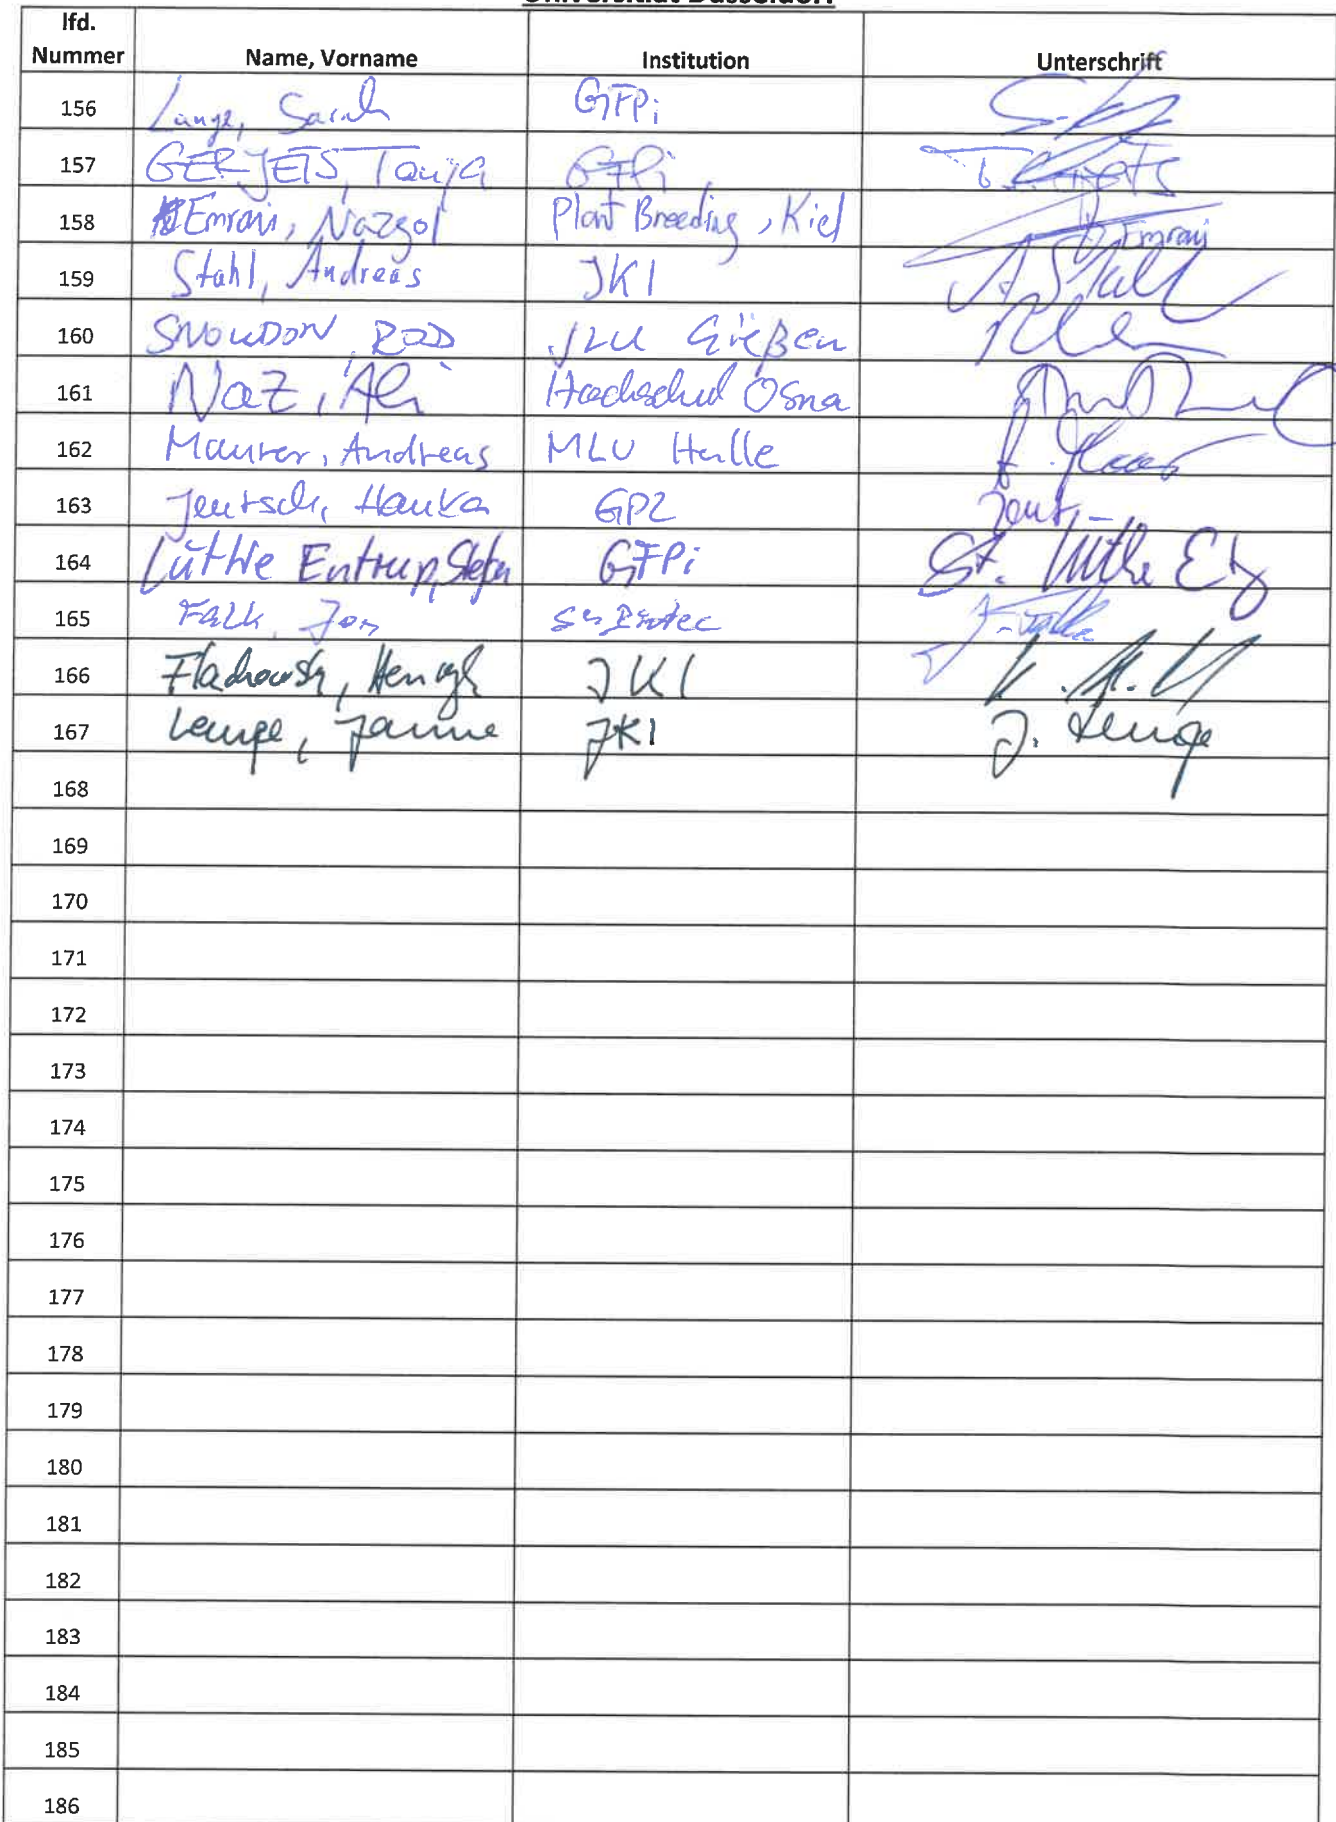 Universität Düsseldorf
lfd. Nummer Name, Vorname Institution Unterschrift
156 Lange, Sarah GFPi
157 GERJETS, Tanja GFPi T. Gerjets
158 Emrani, Nazgol Plant Breeding, Kiel N. Emrani
159 Stahl, Andreas JKI A. Stahl
160 SNOWDON, ROD JLU Gießen
161 Naz, Ali Hochschul Osna
162 Maurer, Andreas MLU Halle
163 Jentsch, GPZ Jent
164 Lüthje Entrup, Stefan GFPi St.
165 Falk, Jon J. Falk
166 Flachowsky, Henryk JKI
167 Lempe, Janne JKI J. Lempe
168
169
170
171
172
173
174
175
176
177
178
179
180
181
182
183
184
185
186